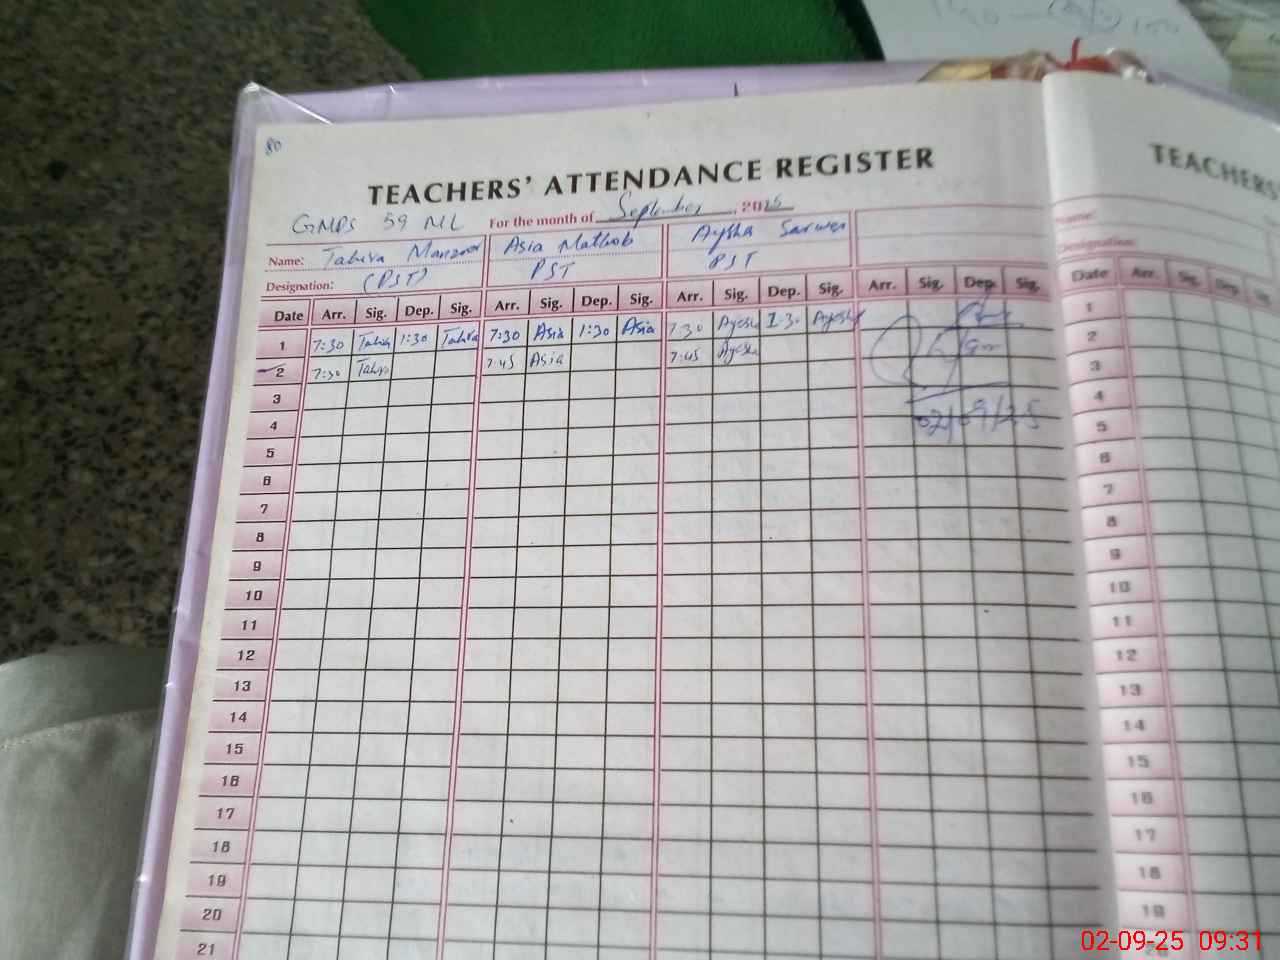 80
TEACHERS' ATTENDANCE REGISTER
TEACHERS
GMPS 59 ML For the month of September, 2025
Name: Tahira Manzoor Asia Mathob Aysha Sarwar
Designation: (PST) PST PST
Date Arr. Sig. Dep. Sig. Arr. Sig. Dep. Sig. Arr. Sig. Dep. Sig. Arr. Sig. Dep. Sig.
1 7:30 Tahira 1:30 Tahira 7:30 Asia 1:30 Asia 7:30 Ayesha 1:30 Ayesha
2 7:30 Tahira 7:45 Asia 7:45 Ayesha
3
4 02/09/25
5
6
7
8
9
10
11
12
13
14
15
16
17
18
19
20
21
Name:
Designation:
Date Arr. Sig. Dep. Sig.
1
2
3
4
5
6
7
8
9
10
11
12
13
14
15
16
17
18
19
20
02-09-25 09:31